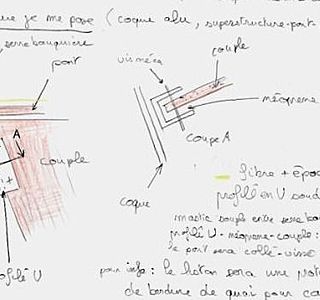 je me pose (coque alu, superstructure-pont
serre bauquière
pont
vis méca
couple
néoprène
A
couple
coupe A
coque
fibre + épo
profilé en U soud
mastic souple entre serre bau
profilé U - néoprène - couple :
le pont sera collé-vissé
profilé U
pour info : le
sera une
de bordure de quai pour ca